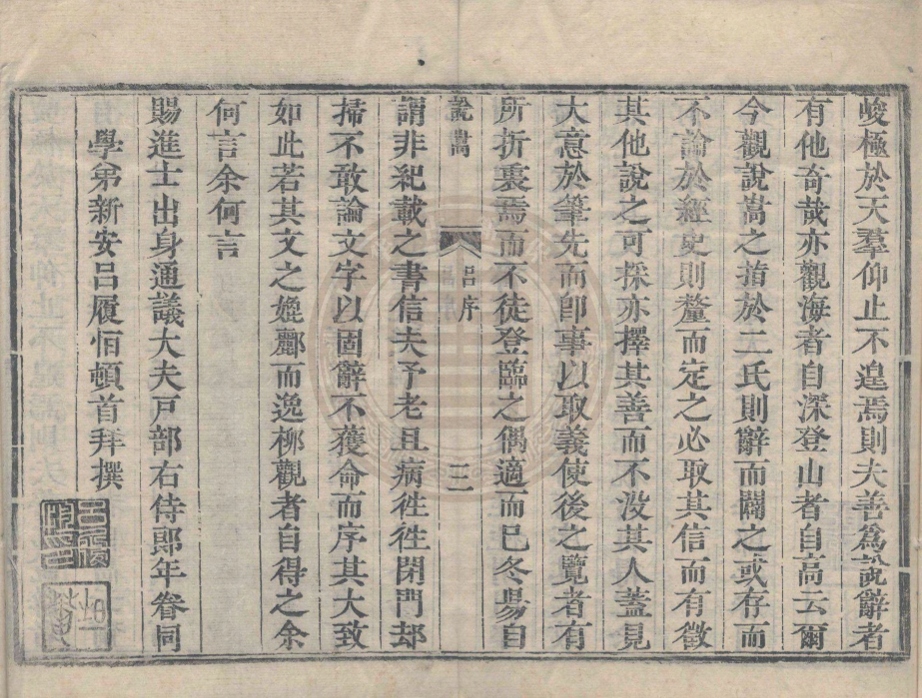 峻極於天羣仰止不遑焉則夫善為說辭者
有他奇哉亦觀海者自深登山者自高云爾
今觀說嵩之措於二氏則辭而闢之或存而
不論於經史則釐而定之必取其信而有徵
其他說之可採亦擇其善而不没其人蓋見
大意於筆先而卽事以取義使後之覽者有
所折衷焉而不徒登臨之偶適而已冬昜自
說嵩
呂序
三
謂非紀載之書信夫予老且病徃徃閉門却
掃不敢論文字以固辭不獲命而序其大致
如此若其文之娩酈而逸柳觀者自得之余
何言余何言
賜進士出身通議大夫戸部右侍郎年眷同
學弟新安呂履恒頓首拜撰